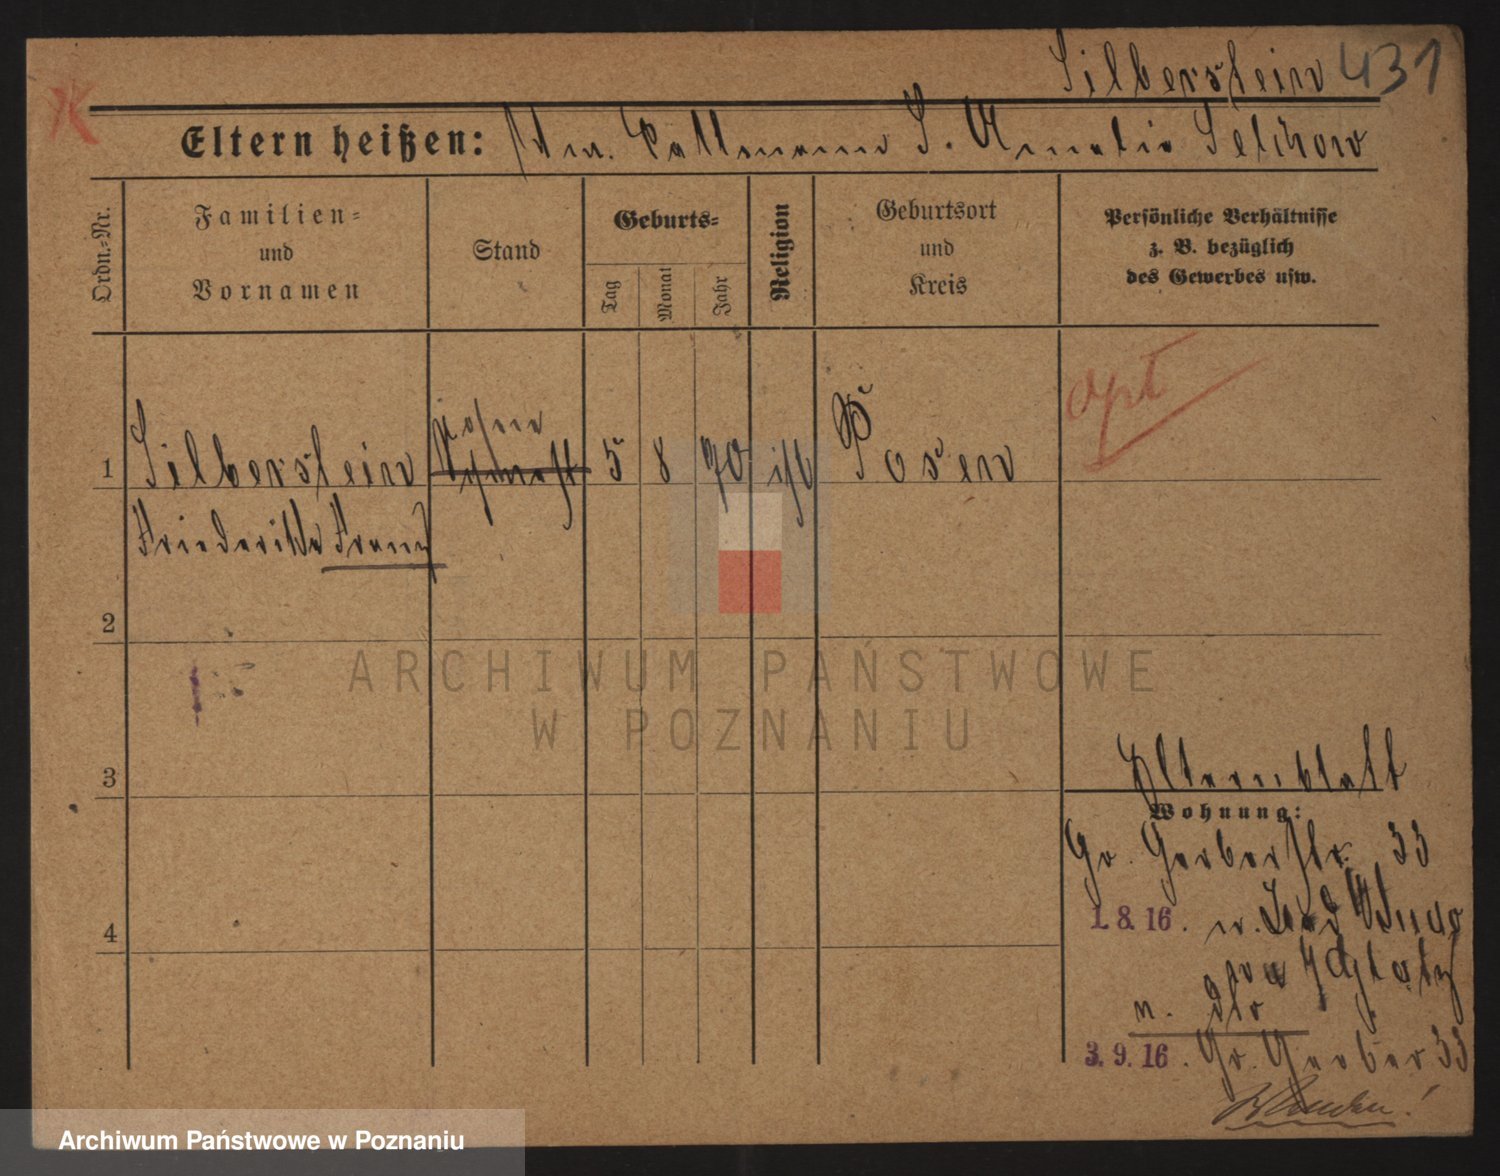 Silberstein 431
K
Eltern heißen: Kallmann S. Amalie Selchow
Ordn.-Nr.
Familien-
und
Vornamen
Stand
Geburts-
Tag
Monat
Jahr
Religion
Geburtsort
und
Kreis
Persönliche Verhältnisse
z. B. bezüglich
des Gewerbes usw.
opt
ohne
1 Silberstein 5 8 70 isr Posen
Friederike Franz
2
ARCHIWUM PAŃSTWOWE
W POZNANIU
3
Elternblatt
Wohnung:
Gr. Gerberstr. 33
1. 8. 16. n. Bad
4
n.
3. 9. 16. Gr. Gerber 33
Archiwum Państwowe w Poznaniu